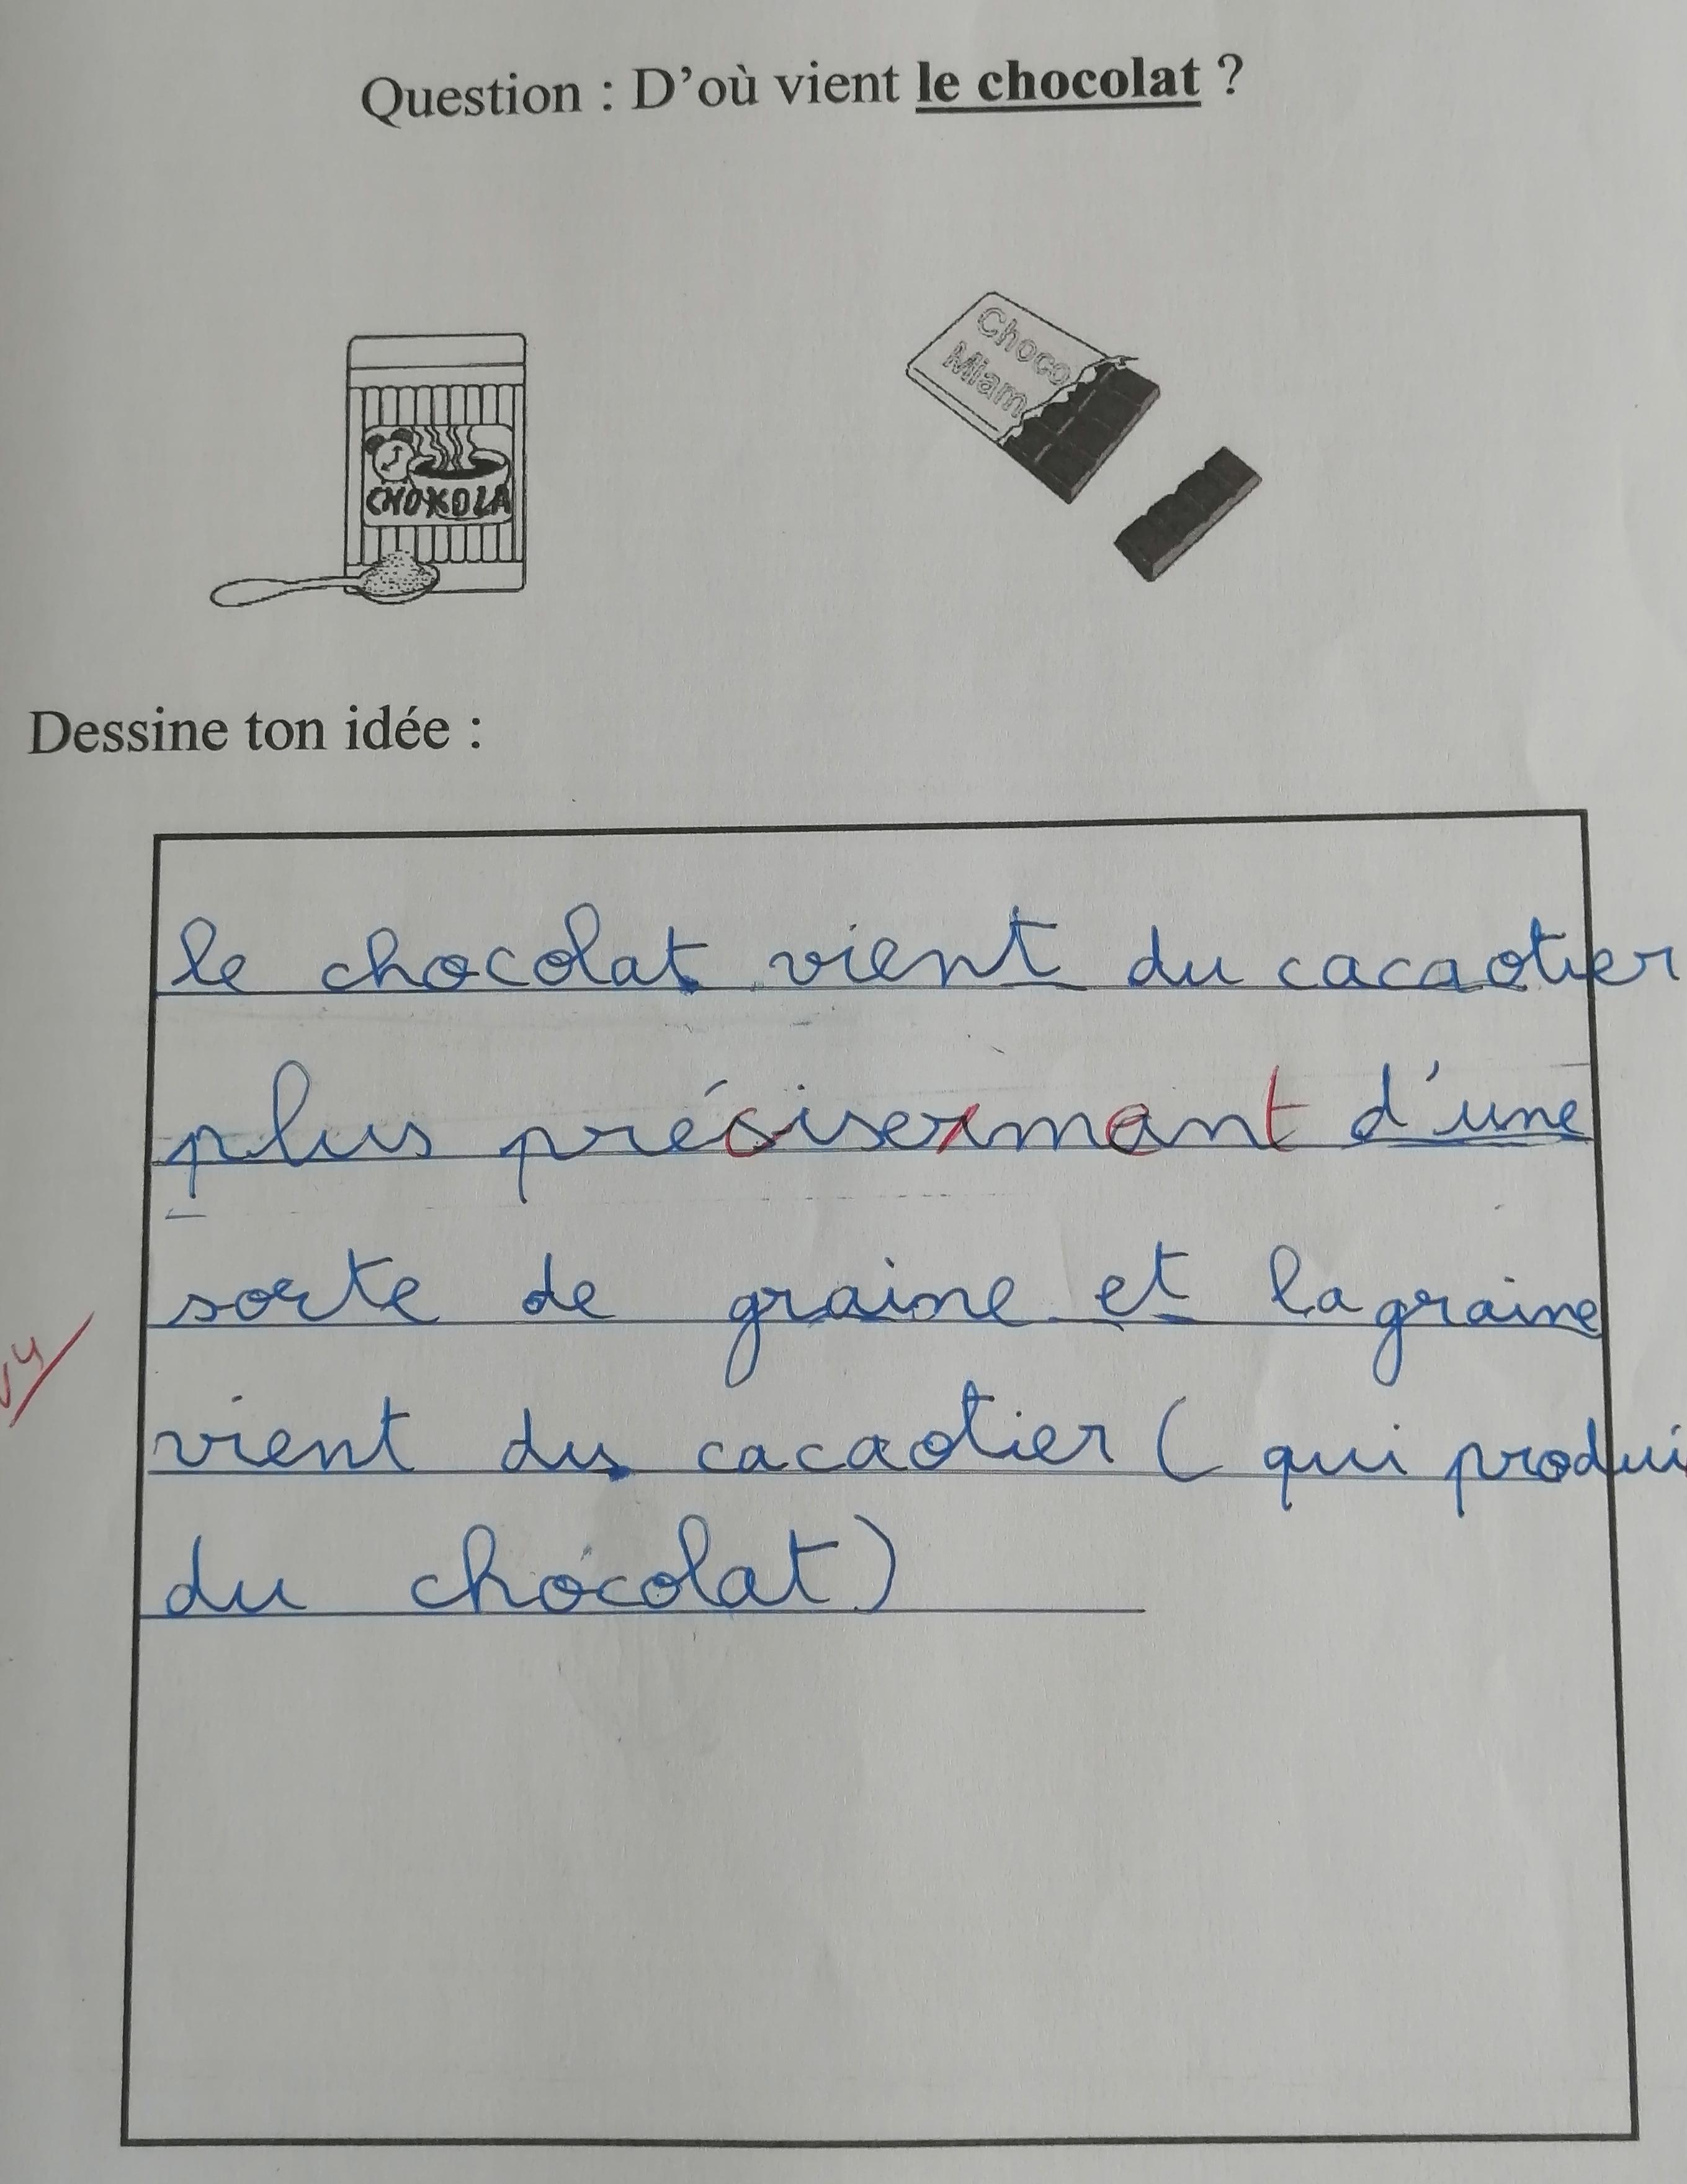 Question : D'où vient le chocolat ?
Choco
Miam
CHOKOLA
Dessine ton idée :
le chocolat vient du cacaotier
plus précisermant d'une
sorte de graine et la graine
vient du cacaotier ( qui produi
du chocolat)